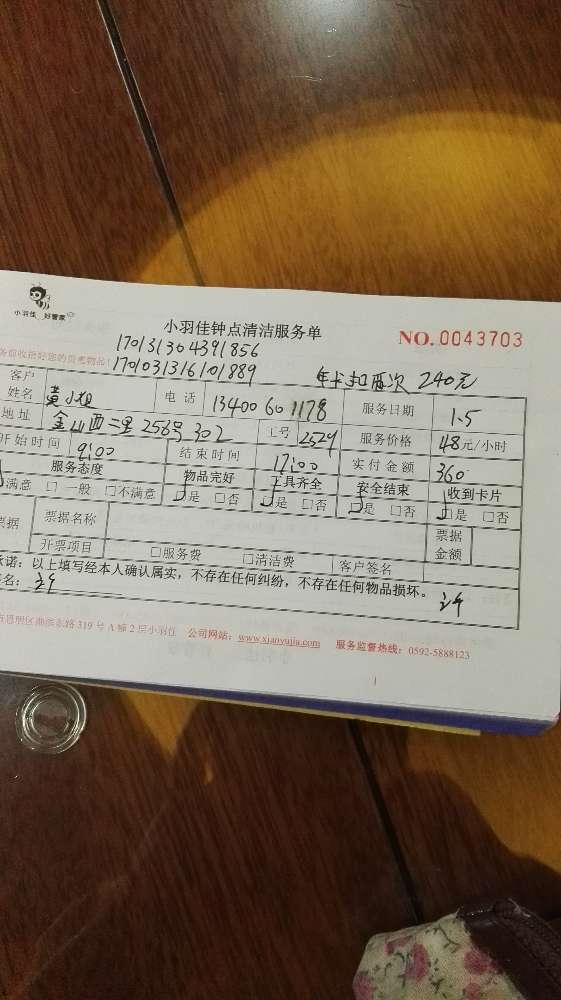 小羽佳 好管家
小羽佳钟点清洁服务单
NO.0043703
170131304391856
务前收拾好您的贵重物品！
170103131610 1889
年卡扣两次 240元
客户姓名 黄小姐 电话 13400601178 服务日期 1.5
地址 金山西二里256号302 工号 2529 服务价格 48元/小时
开始时间 9:00 结束时间 17:00 实付金额 360
服务态度 物品完好 工具齐全 安全结束 收到卡片
满意 □一般 □不满意 □是 □否 □是 □否 □是 □否 □是 □否
票据 票据名称 票据金额
开票项目 □服务费 □清洁费 客户签名
承诺：以上填写经本人确认属实，不存在任何纠纷，不存在任何物品损坏。
签名：
市思明区湖滨东路319号A幢2层小羽佳 公司网站：www.xiaoyujia.com 服务监督热线：0592-5888123
1